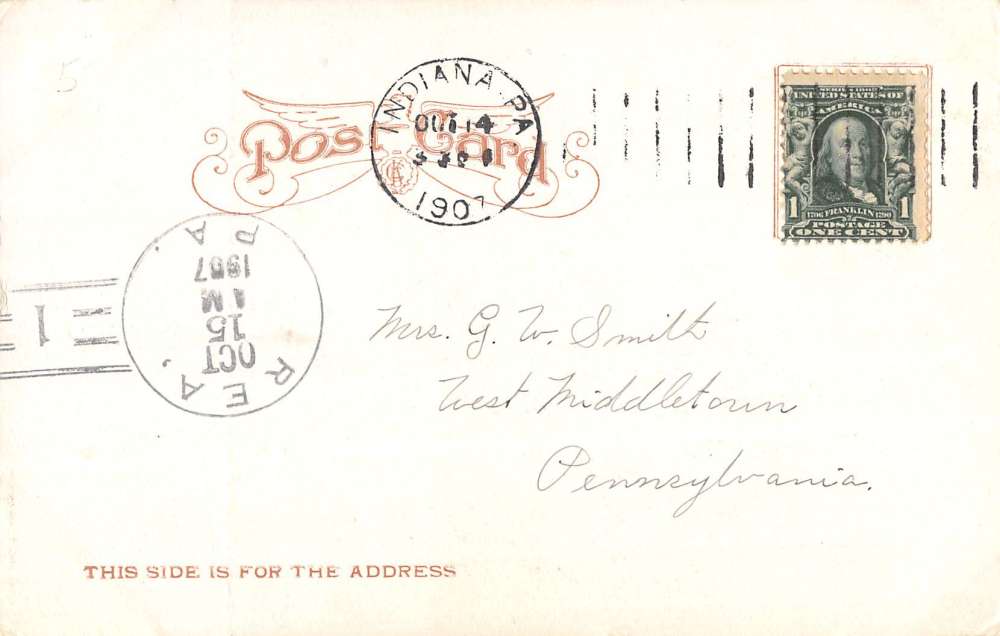 5
Post Card
INDIANA, PA
OCT 14
1907
SERIES 1902
UNITED STATES OF
AMERICA
1 1706 FRANKLIN 1790 1
POSTAGE
ONE CENT
REA,
OCT
15
AM
1907
PA.
1
Mrs. G. W. Smith
West Middletown
Pennsylvania.
THIS SIDE IS FOR THE ADDRESS